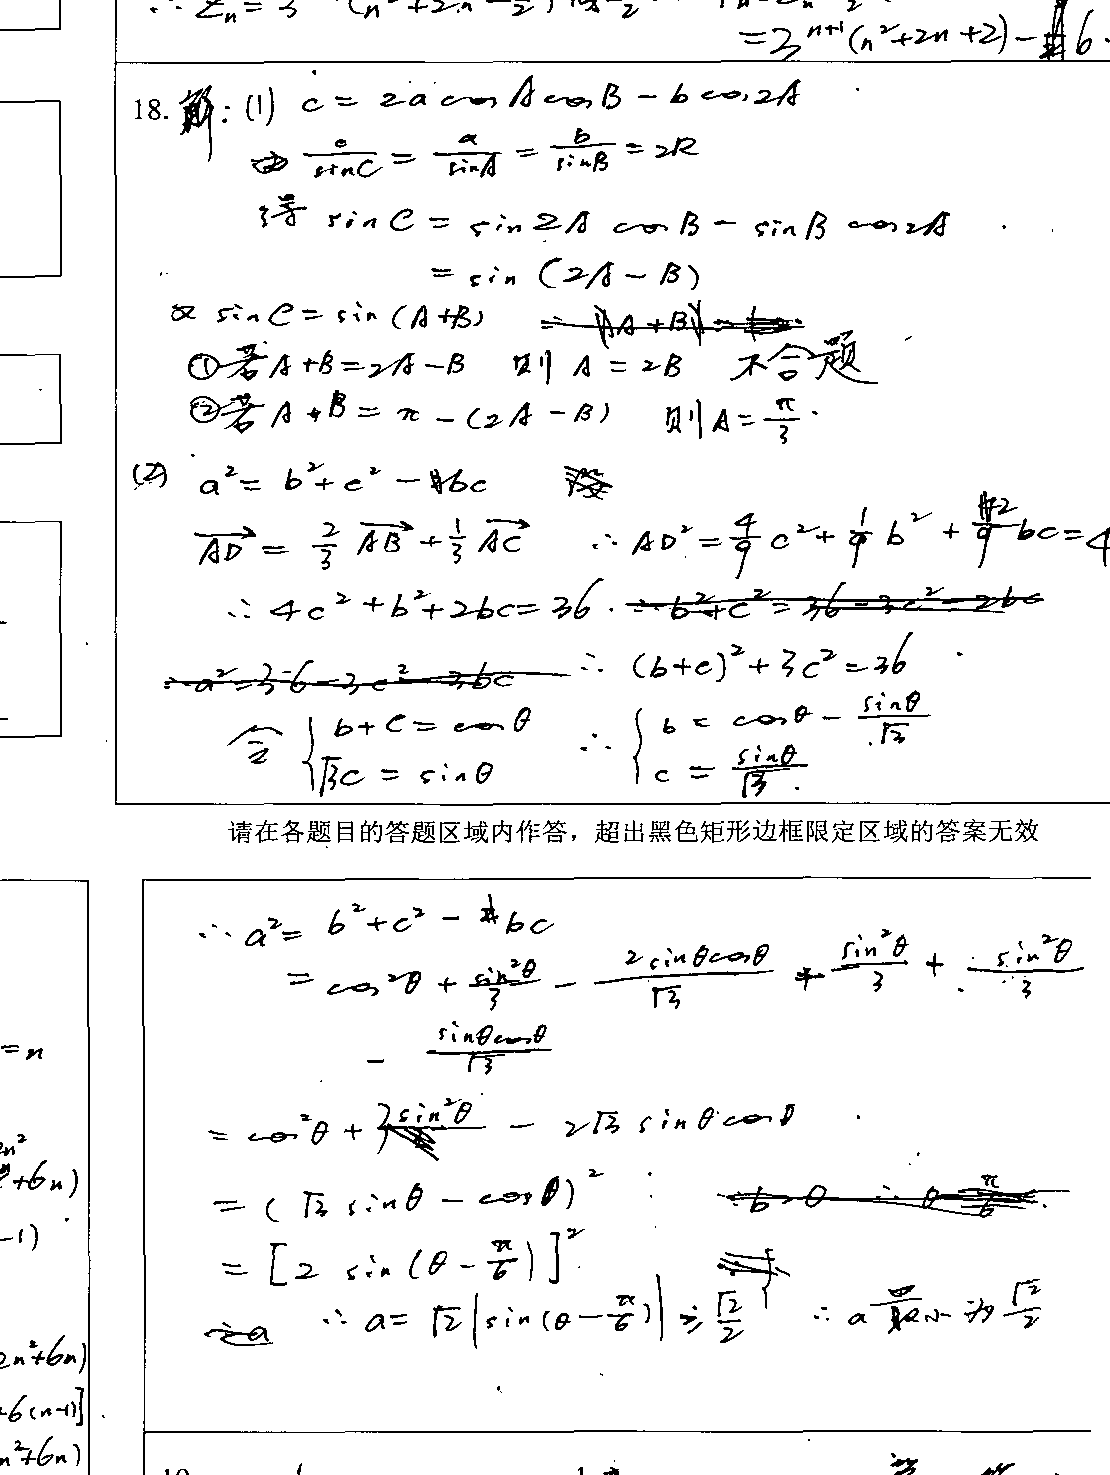 ∴ Zn = 3
= 3^{n+1}(n²+2n+2) - 6.
18. 解：(1) c = 2a cosA cosB - b cos2A
由 c/sinC = a/sinA = b/sinB = 2R
得 sinC = sin2A cosB - sinB cos2A
= sin (2A - B)
又 sinC = sin (A+B)
①若 A+B = 2A-B 则 A = 2B 不合题
②若 A+B = π - (2A - B) 则 A = π/3.
(2) a² = b² + c² - bc
AD→ = 2/3 AB→ + 1/3 AC→ ∴ AD² = 4/9 c² + 1/9 b² + 2/9 bc = 4
∴ 4c² + b² + 2bc = 36. ∴ b²+c² = 36 - 3c² - 2bc
∴ a² = 36 - 3c² - 3bc ∴ (b+c)² + 3c² = 36
令 { b + c = cosθ ∴ { b = cosθ - sinθ/√3
√3c = sinθ c = sinθ/√3.
请在各题目的答题区域内作答，超出黑色矩形边框限定区域的答案无效
∴ a² = b² + c² - bc
= cos²θ + sin²θ/3 - 2sinθcosθ/√3 + sin²θ/3 + sin²θ/3
- sinθcosθ/√3
= n
= cos²θ + 3sin²θ - 2√3 sinθ cosθ
2n²
+6n)
= (√3 sinθ - cosθ)²
-1)
= [2 sin(θ - π/6)]²
∴ a = √2 |sin(θ - π/6)| ≥ √2/2 ∴ a最小为 √2/2
2n²+6n)
+6(n-1)]
n²+6n)